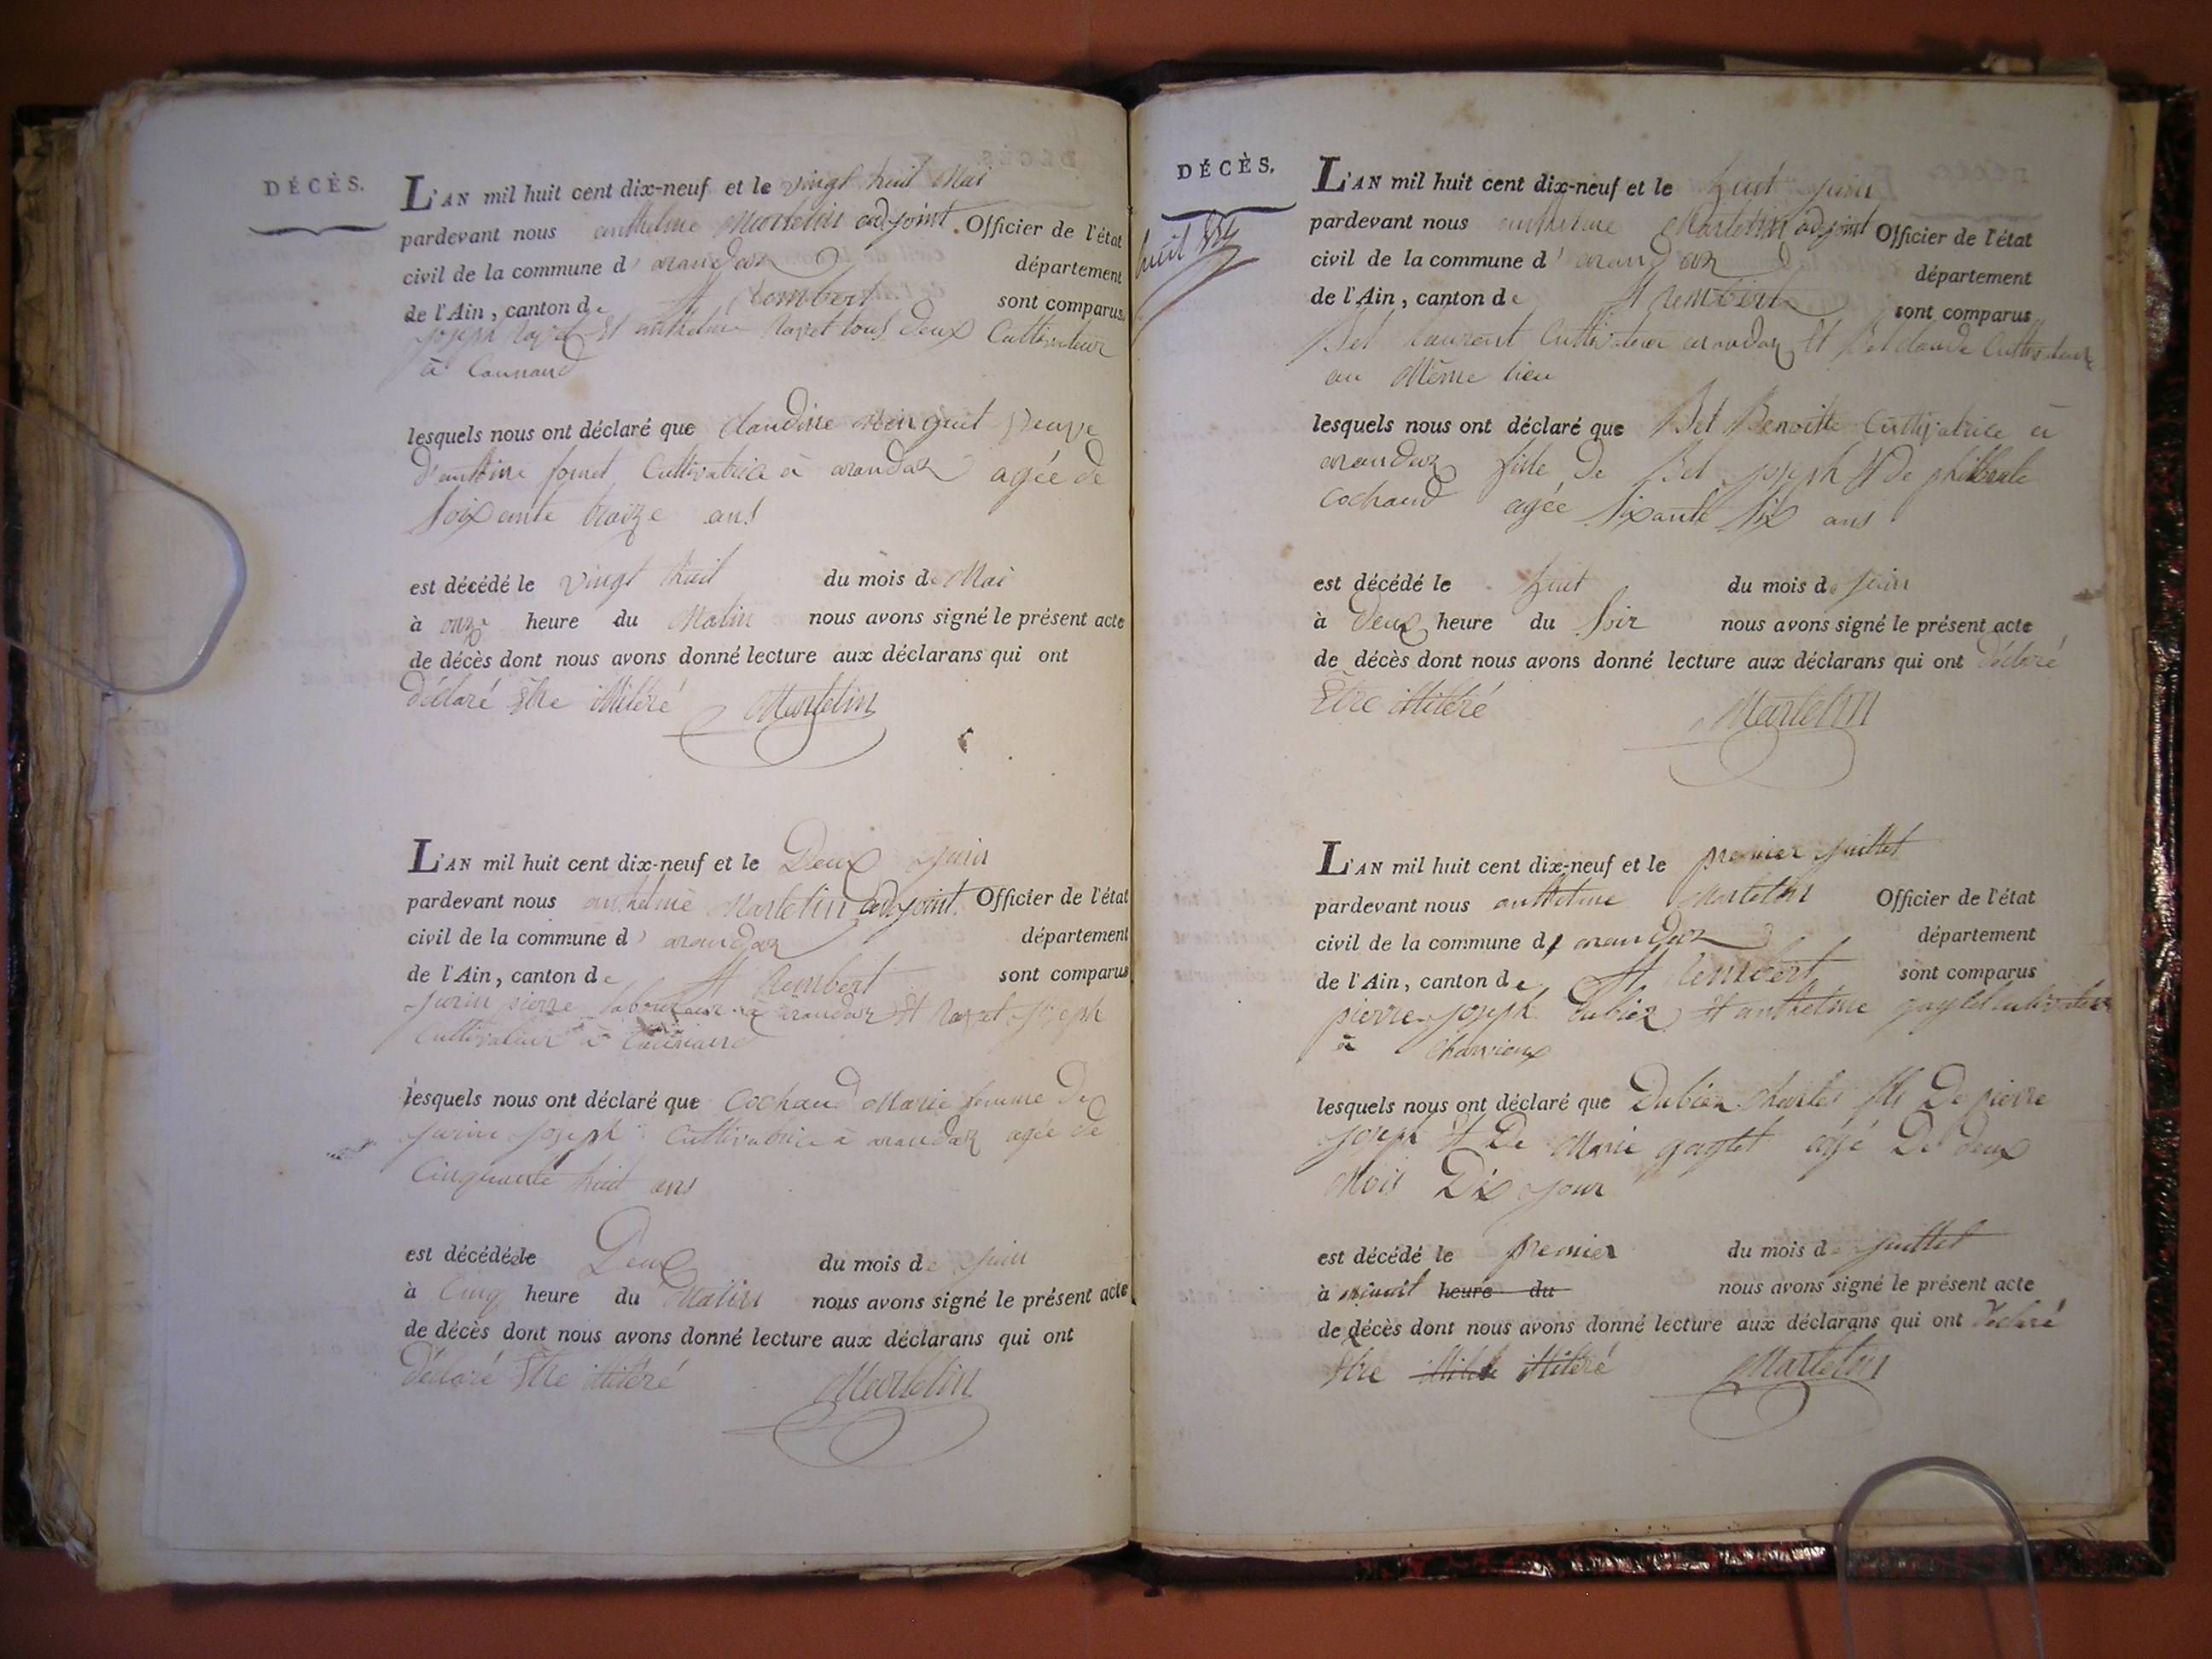 DÉCÈS.
L'AN mil huit cent dix-neuf et le vingt huit Mai
pardevant nous anthelme Martelin adjoint Officier de l'état
civil de la commune d' arandaz département
de l'Ain, canton de St Rembert sont comparus
joseph ravet et anthelme ravet tous deux Cultivateur
à
lesquels nous ont déclaré que Claudine veuve
d'antoine Cultivatrice à arandaz agée de
soixante traize ans
est décédé le vingt huit du mois de Mai
à onze heure du Matin nous avons signé le présent acte
de décès dont nous avons donné lecture aux déclarans qui ont
déclaré être illitéré Martelin
L'AN mil huit cent dix-neuf et le Deux juin
pardevant nous anthelme Martelin adjoint Officier de l'état
civil de la commune d' arandaz département
de l'Ain, canton de St Rembert sont comparus
jurin pierre laboureur à arandaz et ravet joseph
Cultivateur à
lesquels nous ont déclaré que Cochand Marie femme De
jurin joseph Cultivatrice à arandaz agée de
Cinquante huit ans
est décédée le Deux du mois de juin
à Cinq heure du Matin nous avons signé le présent acte
de décès dont nous avons donné lecture aux déclarans qui ont
déclaré être illitéré Martelin
DÉCÈS.
L'AN mil huit cent dix-neuf et le huit juin
pardevant nous anthelme Martelin adjoint Officier de l'état
civil de la commune d' arandaz département
de l'Ain, canton de St rembert sont comparus
Bet laurent Cultivateur arandaz et Bet claude Cultivateur
au Même lieu
lesquels nous ont déclaré que Bet Benoitte Cultivatrice à
arandaz fille De Bet joseph et De philiberte
cochand agée sixante six ans
est décédé le huit du mois de juin
à Deux heure du soir nous avons signé le présent acte
de décès dont nous avons donné lecture aux déclarans qui ont déclaré
Être illitéré Martelin
L'AN mil huit cent dix-neuf et le premier juillet
pardevant nous anthelme Martelin Officier de l'état
civil de la commune d' arandaz département
de l'Ain, canton de St Rembert sont comparus
pierre joseph Dubiez et anthelme gaylet Cultivateur
à Charvieux
lesquels nous ont déclaré que Dubiez Charles fils De pierre
joseph et De Marie gaylet agé De deux
Mois Dix jour
est décédé le premier du mois de juillet
à minuit heure du nous avons signé le présent acte
de décès dont nous avons donné lecture aux déclarans qui ont déclaré
être illitéré Martelin